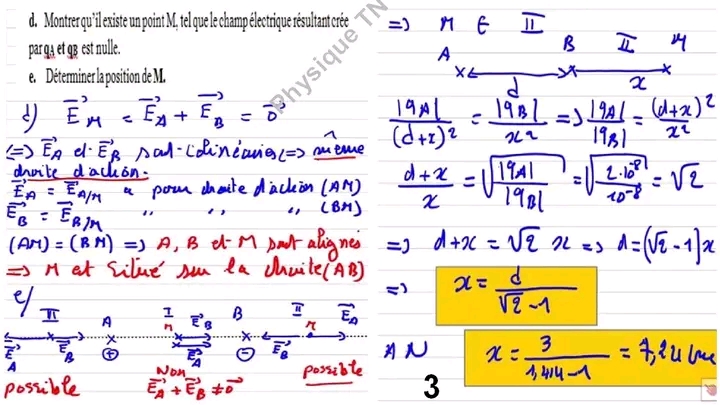 d. Montrer qu'il existe un point M, tel que le champ électrique résultant crée
par qA et qB est nulle.
e. Déterminer la position de M.
Physique TN
d) E⃗M = E⃗A + E⃗B = 0⃗
(=) E⃗A et E⃗B sont colinéaires (=) même
droite d'action.
E⃗A = E⃗A/M a pour droite d'action (AM)
E⃗B = E⃗B/M " " " (BM)
(AM) = (BM) => A, B et M sont alignés
=> M est situé sur la droite (AB)
e/
III A I B II E⃗A
M E⃗B M
E⃗A E⃗B + E⃗A - E⃗B
possible Non possible
E⃗A + E⃗B ≠ 0⃗
=> M ∈ II
A B II M
d x
|qA|/(d+x)² = |qB|/x² => |qA|/|qB| = (d+x)²/x²
(d+x)/x = √(|qA|/|qB|) = √(2.10⁻⁸/10⁻⁸) = √2
=> d+x = √2 x => d = (√2 - 1)x
=> x = d/(√2 - 1)
AN x = 3/(1,414 - 1) = 7,24 cm
3